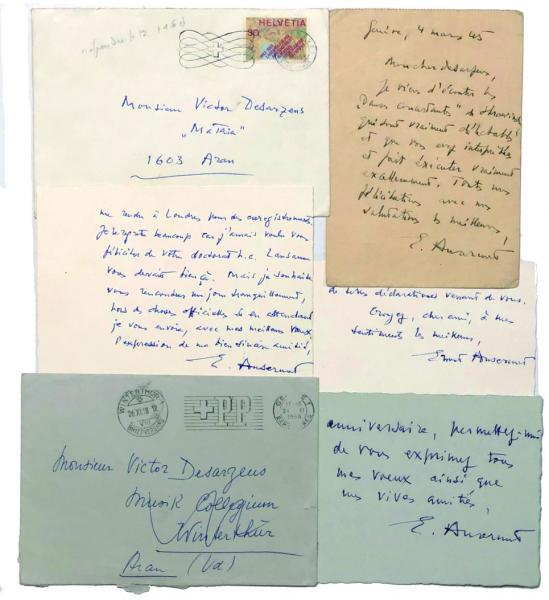 répondu le 12
HELVETIA
30
Monsieur Victor Desarzens
"Mataia"
1603 Aran
Genève, 4 mars 45
Mon cher Desarzens,
Je viens d'écouter les
"Danses concertantes" de Strawinsky
qui sont vraiment
et que vous avez interprétées
et fait exécuter vraiment
excellemment. Toutes mes
félicitations avec mes
salutations les meilleures,
E. Ansermet
me rendre à Londres pour des enregistrements.
Je le regrette beaucoup car j'aurais voulu vous
féliciter de votre doctorat h.c. Lausanne
vous devait bien ça. Mais je souhaite
vous rencontrer un jour tranquillement,
hors des choses officielles et en attendant
je vous envoie, avec mes meilleurs vœux
l'expression de ma bien sincère amitié,
E. Ansermet
de telles déclarations venant de vous.
Croyez, cher ami, à mes
sentiments les meilleurs,
Ernest Ansermet
WINTERTHUR 1
26.XI.18 12
VIII
BRIEFVERSAND
+PP
Monsieur Victor Desarzens
Musik Collegium
Winterthur
Aran (Vd)
anniversaire, permettez-moi
de vous exprimer tous
mes vœux ainsi que
mes vives amitiés,
E. Ansermet